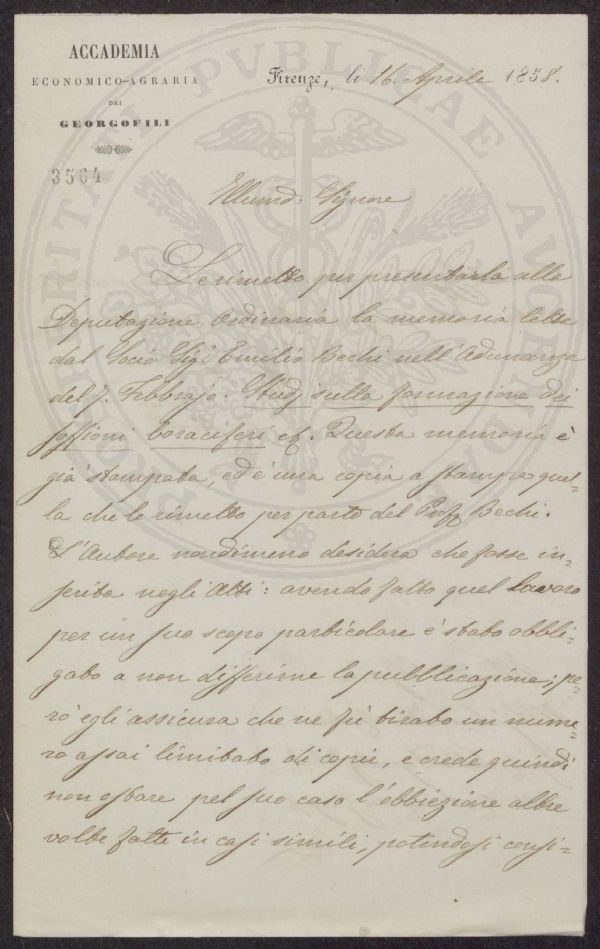 ACCADEMIA
ECONOMICO-AGRARIA
DEI
GEORGOFILI
3564
Firenze, li 16. Aprile 1858.
PROSPERITATI PVBLICAE AVGENDAE
Illmo. Signore
Le rimetto per presentarla alla
Deputazione Ordinaria la memoria letta
dal Socio Sigr. Emilio Bechi nell'Adunanza
del 7. Febbrajo. Studj sulla formazione dei
soffioni boraciferi ec. Questa memoria è
già stampata, ed è una copia a stampa quel-
la che le rimetto per parte del Profr. Bechi.
L'Autore nondimeno desidera che fosse in-
serita negli Atti: avendo fatto quel lavoro
per un suo scopo particolare è stato obbli-
gato a non differirne la pubblicazione; pe-
rò egli assicura che ne fù tirato un nume-
ro assai limitato di copie, e crede quindi
non ostare pel suo caso l'obbiezione altre
volte fatte in casi simili, potendosi consi-